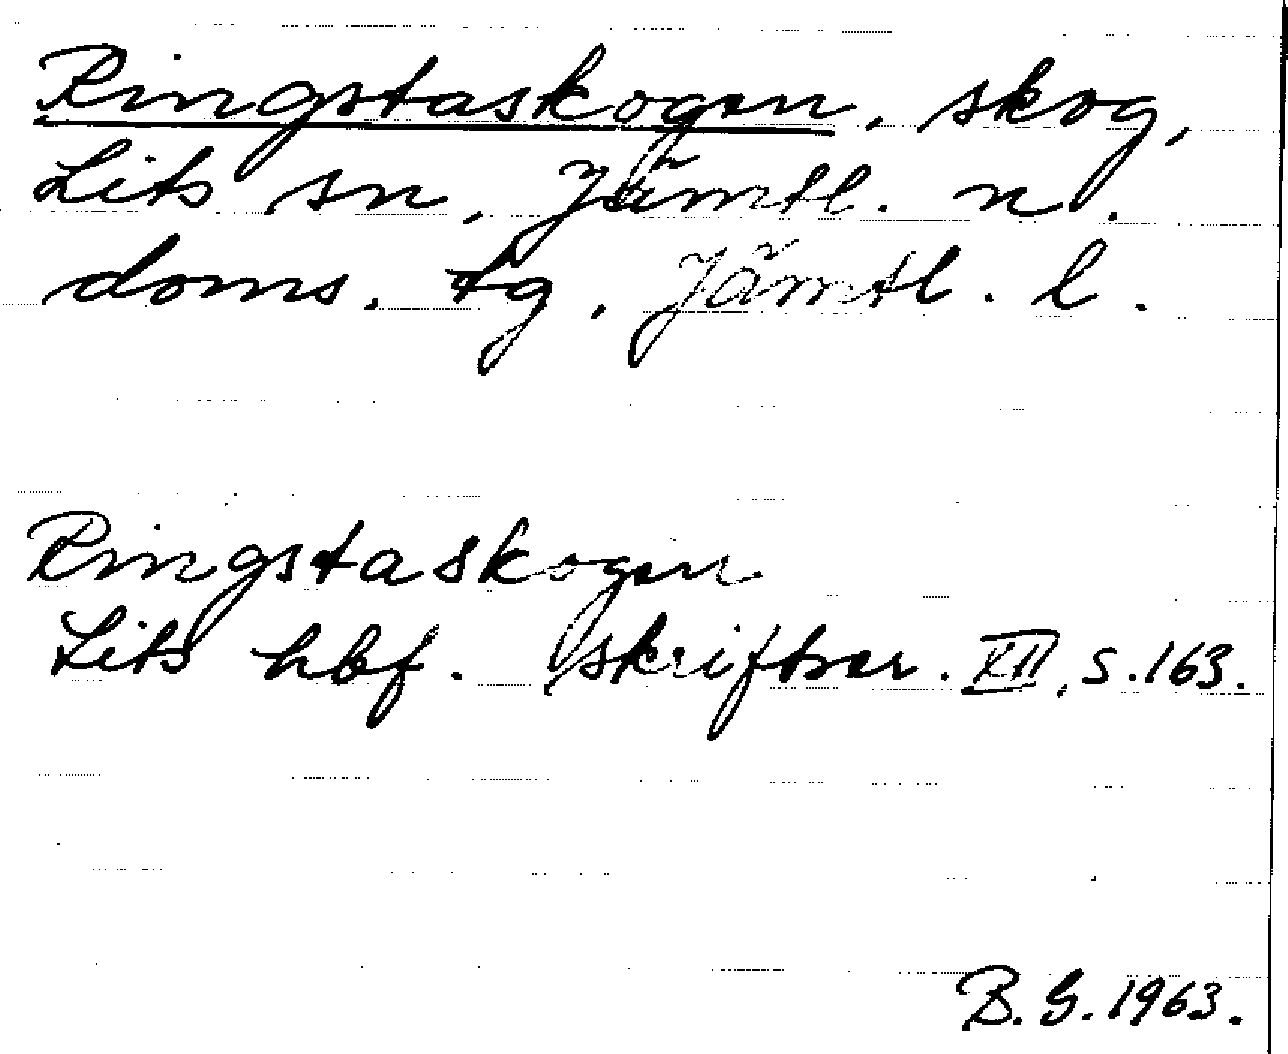 Ringstaskogen, skog,
Lits sn, Jämtl. n.
doms. tg, Jämtl. l.
Ringstaskogen
Lits hbf. skriftser. XII, s. 163.
B. G. 1963.